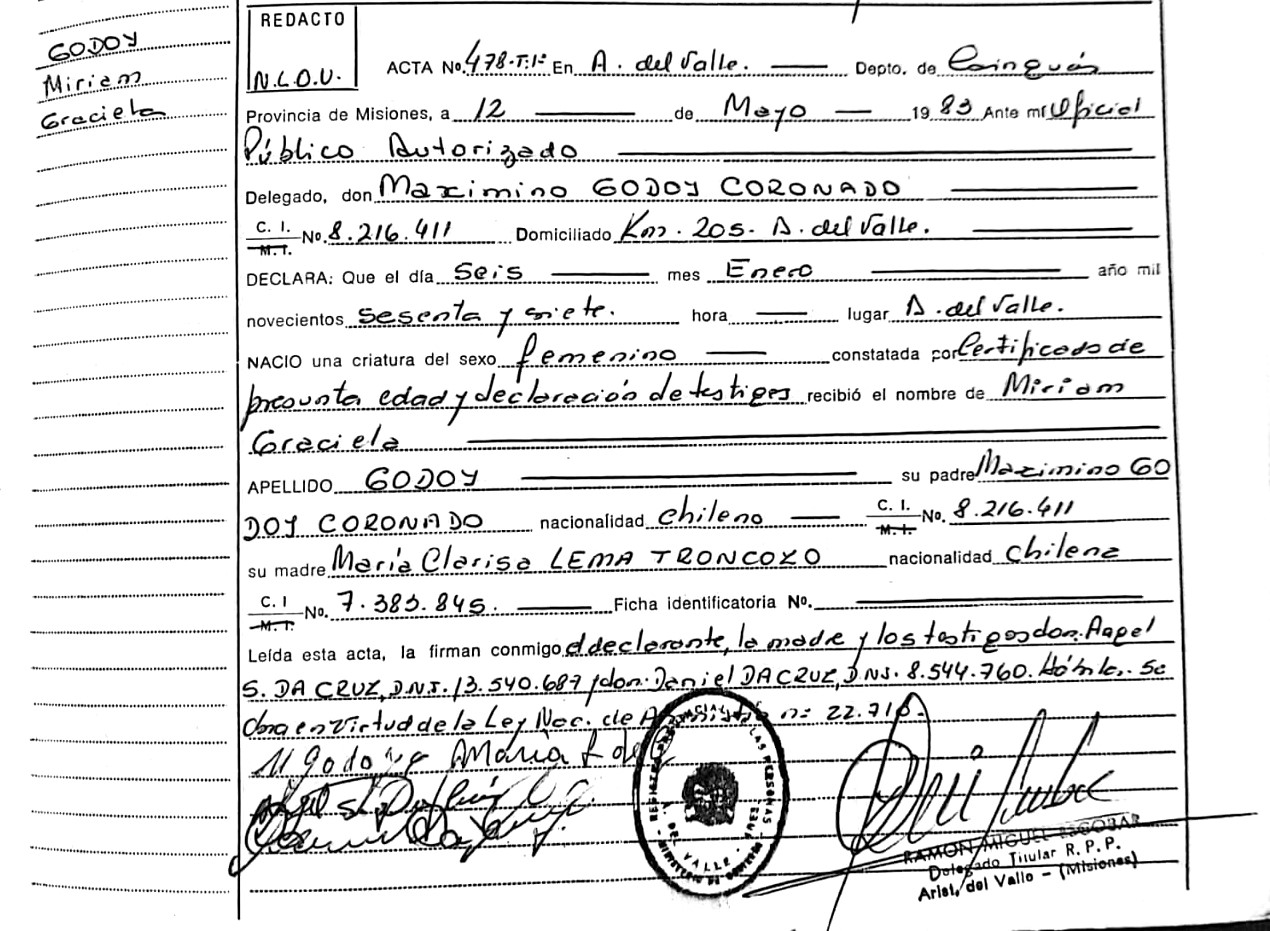 GODOY
Miriam
Graciela
REDACTO
N.L.O.U.
ACTA No. 478-T.1º En A. del Valle. Depto. de Cainguás
Provincia de Misiones, a 12 de Mayo 1983 Ante mí Oficial
Público Autorizado
Delegado, don Maximino GODOY CORONADO
C. I.
M. I. No. 8.216.411 Domiciliado Km. 205. A. del Valle.
DECLARA: Que el día Seis mes Enero año mil
novecientos sesenta y siete. hora lugar A. del Valle.
NACIO una criatura del sexo femenino constatada por Certificado de
presunta edad y declaración de testigos recibió el nombre de Miriam
Graciela
APELLIDO GODOY su padre Maximino GO
DOY CORONADO nacionalidad chileno C. I.
M. I. No. 8.216.411
su madre María Clarisa LEMA TRONCOZO nacionalidad chilena
C. I
M. I. No. 7.383.845. Ficha identificatoria No.
Leída esta acta, la firman conmigo el declarante, la madre y los testigos don: Angel
S. DA CRUZ, D.N.I. 13.540.687 y don: Daniel DA CRUZ, D.N.I. 8.544.760. Se
obra en virtud de la Ley Nac. de nº 22.710.
M Godoy María L de
REGISTRO PROVINCIAL DE LAS PERSONAS
A. DEL VALLE
MINISTERIO DE GOBIERNO
RAMON MIGUEL ESCOBAR
Delegado Titular R. P. P.
Arist. del Valle - (Misiones)